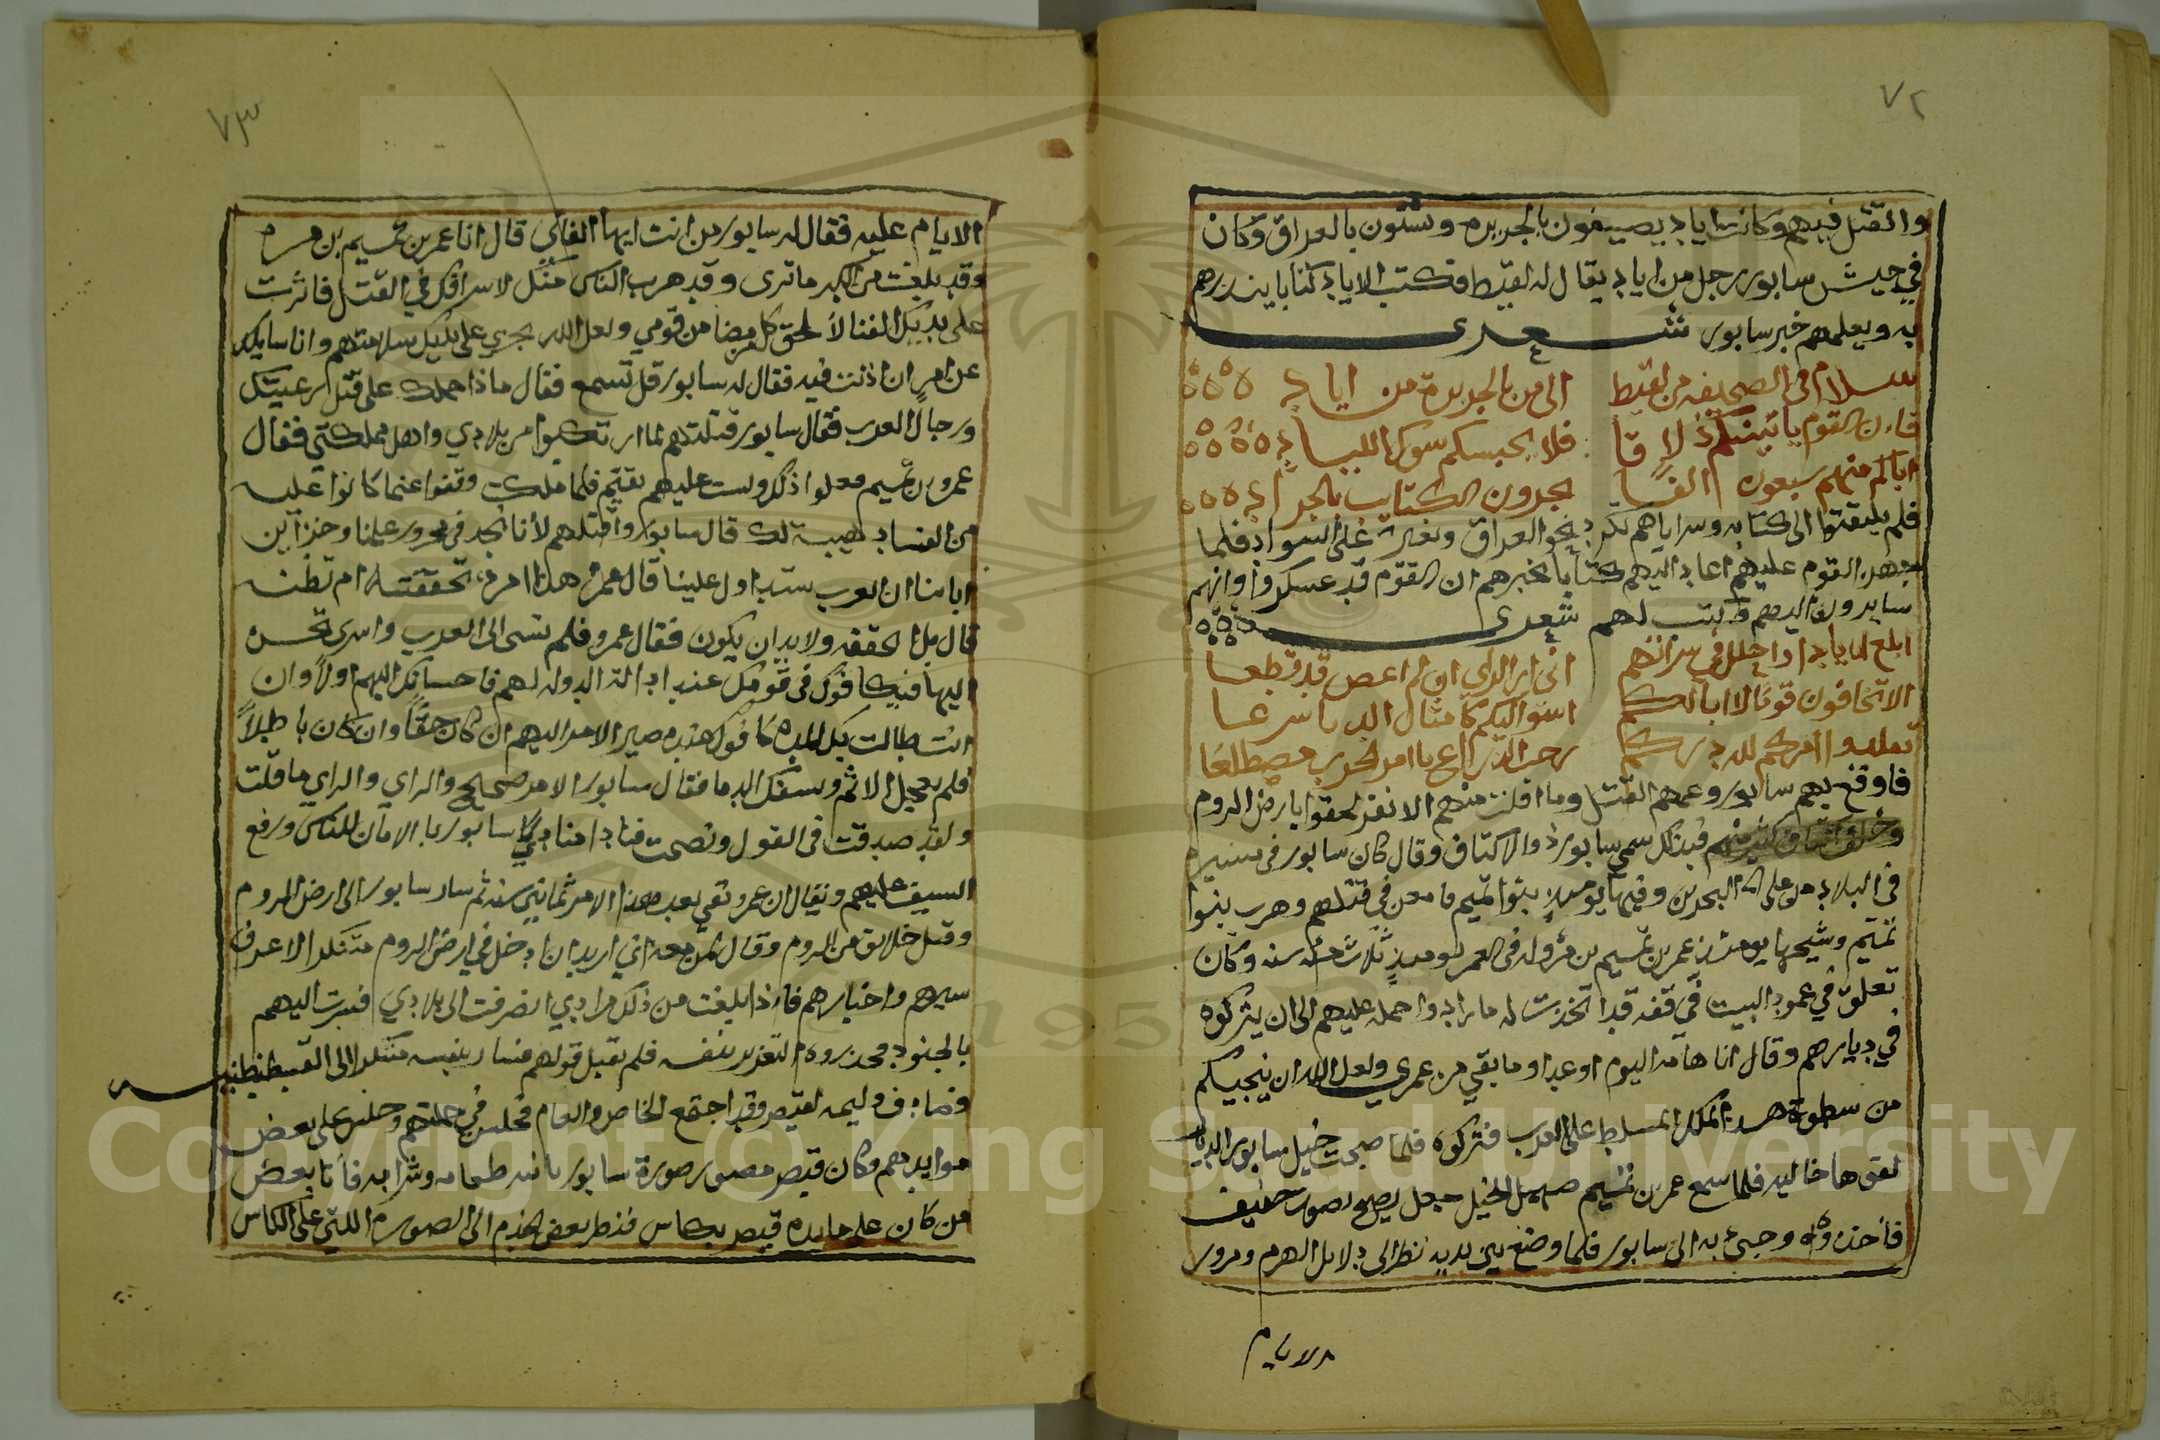 ٧٢
والقتل فيهم وكانت اياد يصيفون بالجزيره ويشتون بالعراق وكان
في جيش سابور رجل من اياد يقال له لقيط فكتب الاياد كتابا ينذرهم
به ويعلمهم خبر سابور شعرى
سلام في الصحيفه من لقيط الى من بالجزيرة من اياد
فان القوم ياتينكم دلاقا فلا يحبسكم سوق البلاد
اتاكم منهم سبعون الفا يجرون الكتايب بالجراد
فلم يلتفتوا الى كتابه وسراياهم تكر نحو العراق وتغير على السواد فلما
تجهز القوم عليهم اعاد اليهم كتابا يخبرهم ان القوم قد عسكروا وانهم
سايرون اليهم كتب لهم شعرى
ابلغ ايادا وخلل في سراتهم انى ارى الراي ان لم اعص قد قطعا
الا تخافون قوما لا ابا لكم امسوا اليكم كامثال الدبا سرعا
فقلدوا امركم لله دركم رحب الذراع بامر الحرب مضطلعا
فاوقع بهم سابور وعمهم القتل وما افلت منهم الا نفر لحقوا بارض الروم
وخلع اكتاف كثير منهم فبذلك سمي سابور ذو الاكتاف وقال كان سابور في مسيره
في البلاد على البحرين وفيها يوميذ بنوا تميم فامعن في قتلهم وهرب بنوا
تميم وشيخها يوميذ عمر بن تميم بن مر وله في العمر يوميذ ثلاث مئة سنه وكان
تعلق في عمود البيت في قفه قد اتخذت له فاراد واحمله عليهم الى ان يتركوه
في ديارهم وقال انا هامه اليوم او غدا وما بقي من عمري ولعل الله ان ينجيكم
من سطوة هذا الملك المسلط على العرب فتركوه فلما صبحت خيل سابور الديار
لقوها خاليه فلما سمع عمر بن تميم صهيل الخيل جعل يصيح بصوت ضعيف
فاخذوه وجىء به الى سابور فلما وضع بين يديه نظر الى دلايل الهرم ومرور
الايام
٧٣
الايام عليه فقال له سابور من انت ايها الفاني قال انا عمر بن تميم بن مر
وقد بلغت من الكبر ما ترى وقد هرب الناس منك لاسرافك في القتل فاثرت
على يديك الفنا لالحق كل من مضا من قومي ولعل الله يجري على يديك سلامتهم وانا سايلك
عن امر ان اذنت فيه فقال له سابور قل تسمع فقال ماذا حملك على قتل رعيتك
ورجال العرب فقال سابور قتلتهم لما ارتكبوا من بلادي واهل مملكتي فقال
عمرو بن تميم فعلوا ذلك ولست عليهم بقيم فلما ملكت وقفوا عما كانوا عليه
من الفساد هيبة لك قال سابور واقتلهم لانا نجد في مخزون علمنا وخبر ابن
ابائنا ان العرب ستداول علينا قال عمر هذا امر تحققته ام تظنه
قال بل احققه ولا بد ان يكون فقال عمرو فلم تسي الى العرب واسرى تحسن
اليها فيكافوك في قومك عند ادالة الدوله لهم فاحسانك اليهم اولا وان
انت طالت بك المده كافوك عند مصير الامر اليهم ان كان حقا وان كان باطلا
فلم تعجيل الاثم وتسفك الدما فقال سابور الامر صحيح والراي والراي ما قلت
ولقد صدقت في القول ونصحت فنادا منادي سابور بالامان للناس ورفع
السيف عليهم ويقال ان عمرو بقي بعد هذا الامر ثمانين سنه ثم سار سابور الى ارض الروم
وقتل خلايق من الروم وقال لمن معه اني اريد ان ادخل في ارض الروم متنكرا لاعرف
سيرهم واخبارهم فاذا بلغت من ذلك مرادي انصرفت الى بلادي فسرت اليهم
بالجنود فحذروه التغرير بنفسه فلم يقبل قولهم فسار بنفسه متنكرا الى القسطنطينيه
فصادف وليمه لقيصر وقد اجتمع الخاص والعام فجلس في جملتهم وجلس على بعض
موايدهم وكان قيصر مصور صورة سابور باسه طعامه وشرابه فاتا بعض
من كان على مايده قيصر بكاس فنظر بعض الخدم الى الصورة اللتي على الكاس
Copyright © King Saud University
1957